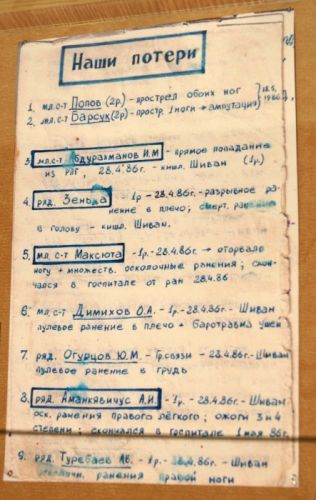 Наши потери
1. мл. с-т Попов (2р) - прострел обоих ног
2. мл. с-т Барсук (2р) - простр. 1 ноги → ампутация
3. мл. с-т Абдурахманов И.М - прямое попадание
из РПГ, 28.4.86г. - кишл. Шиван (1р.)
4. ряд. Зеньда - 1р - 28.4.86г. - разрывное ра-
нение в плечо; смерт. ранение
в голову - кишл. Шиван.
5. мл. с-т Максюта - 1р. - 28.4.86г. → оторвало
ногу + множеств. осколочные ранения; скон-
чался в госпитале от ран 28.4.86
6. мл. с-т Димихов О.А. - 1р. - 28.4.86г. - Шиван
пулевое ранение в плечо + баротравма ушей
7. ряд. Огурцов Ю.М. - Гр. связи - 28.4.86г. - Шиван
пулевое ранение в грудь
8. ряд. Аманкявичус А.И. - 1р. - 28.4.86г. - Шиван
оск. ранения правого лёгкого; ожоги 3 и 4
степени; скончался в госпитале 1 мая 86г.
9. ряд. Туребаев - 1р. - 28.4.86г. - Шиван
ранения правой ноги